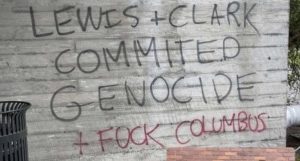 LEWIS + CLARK
COMMITED
GENOCIDE
+ FUCK COLUMBUS